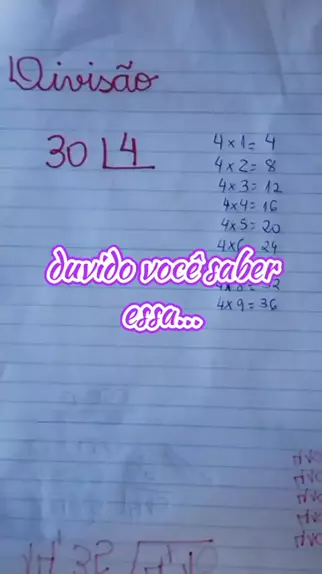 Divisão
30 4
4 x 1 = 4
4 x 2 = 8
4 x 3 = 12
4 x 4 = 16
4 x 5 = 20
4 x 6 = 24
duvido você saber
essa...
4 x 9 = 36